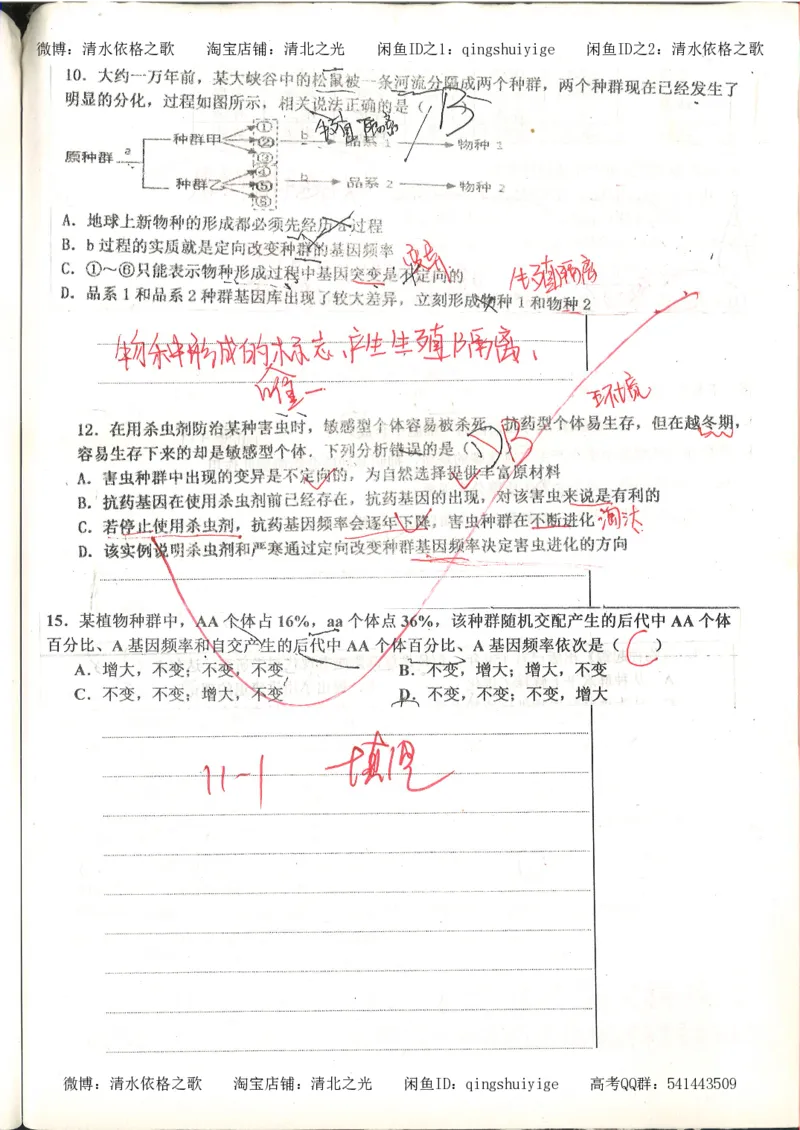 微博：清水依格之歌 淘宝店铺：清北之光 闲鱼ID之1：qingshuiyige 闲鱼ID之2：清水依格之歌
10．大约一万年前，某大峡谷中的松鼠被一条河流分隔成两个种群，两个种群现在已经发生了
明显的分化，过程如图所示，相关说法正确的是（ B
生殖隔离
原种群 a 种群甲 ① ② ③ b 品系 1 物种 1
种群乙 ④ ⑤ ⑥ b 品系 2 物种 2
A．地球上新物种的形成都必须先经历a过程
B．b过程的实质就是定向改变种群的基因频率
C．①～⑥只能表示物种形成过程中基因突变是不定向的
变异
D．品系1和品系2种群基因库出现了较大差异，立刻形成物种1和物种2
生殖隔离
物种形成的标志，产生生殖隔离、
唯一
环境
12．在用杀虫剂防治某种害虫时，敏感型个体容易被杀死，抗药型个体易生存，但在越冬期，
容易生存下来的却是敏感型个体．下列分析错误的是（ ）B
A．害虫种群中出现的变异是不定向的，为自然选择提供丰富原材料
B．抗药基因在使用杀虫剂前已经存在，抗药基因的出现，对该害虫来说是有利的
C．若停止使用杀虫剂，抗药基因频率会逐年下降，害虫种群在不断进化 淘汰
D．该实例说明杀虫剂和严寒通过定向改变种群基因频率决定害虫进化的方向
15．某植物种群中，AA 个体占 16%，aa 个体点 36%，该种群随机交配产生的后代中 AA 个体
百分比、A 基因频率和自交产生的后代中 AA 个体百分比、A 基因频率依次是（ C ）
A．增大，不变；不变，不变 B．不变，增大；增大，不变
C．不变，不变；增大，不变 D．不变，不变；不变，增大
11-1 填空
微博：清水依格之歌 淘宝店铺：清北之光 闲鱼ID：qingshuiyige 高考QQ群：541443509